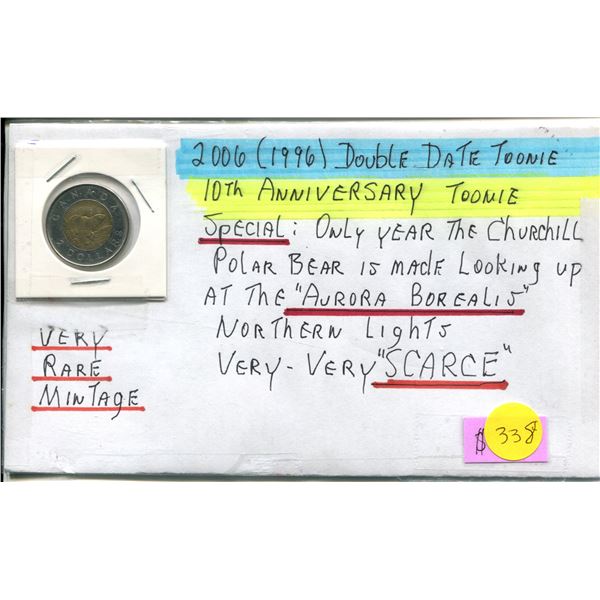 2006 (1996) Double Date Toonie
10th Anniversary Toonie
Special: Only year The Churchill
Polar Bear is made Looking up
At The "Aurora Borealis"
Northern Lights
Very-Very "SCARCE"
CANADA
2 DOLLARS
Very
Rare
Mintage
$ 338